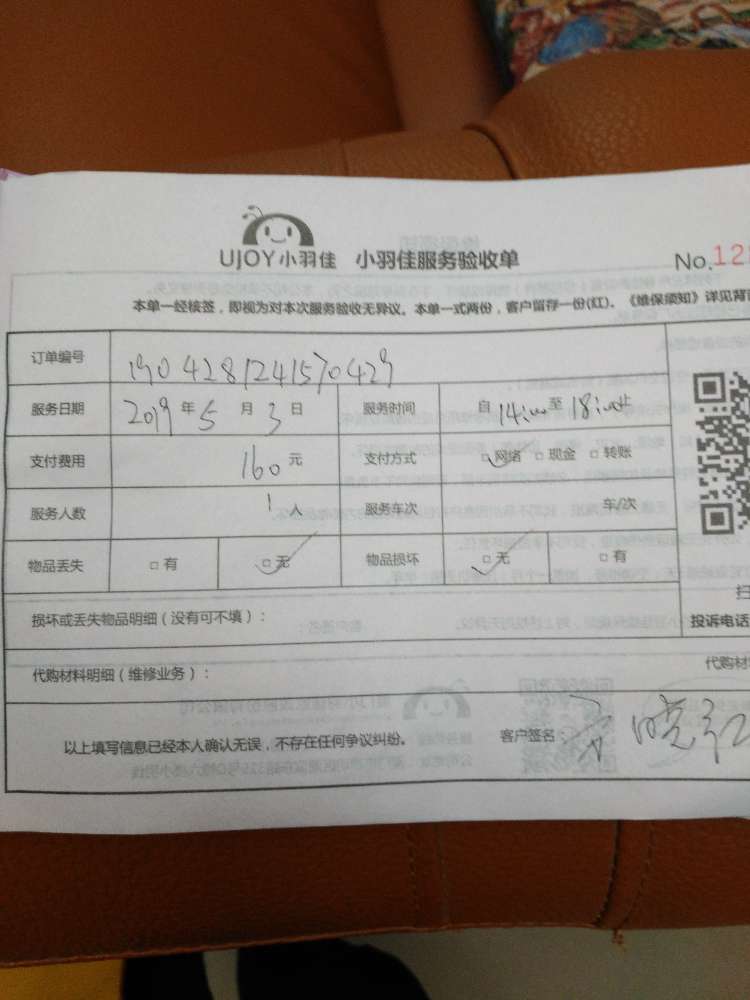 UJOY小羽佳 小羽佳服务验收单 No.12
本单一经接签，即视为对本次服务验收无异议。本单一式两份，客户留存一份(红)、《维保须知》详见背面
订单编号 1904281241570429
服务日期 2019年5月3日 服务时间 自14:00至18:00止
支付费用 160元 支付方式 □网络 □现金 □转账
服务人数 1人 服务车次 车/次
物品丢失 □有 □无 物品损坏 □无 □有
扫
损坏或丢失物品明细（没有可不填）： 投诉电话
代购材料明细（维修业务）： 代购材
以上填写信息已经本人确认无误，不存在任何争议纠纷。 客户签名： 晓红